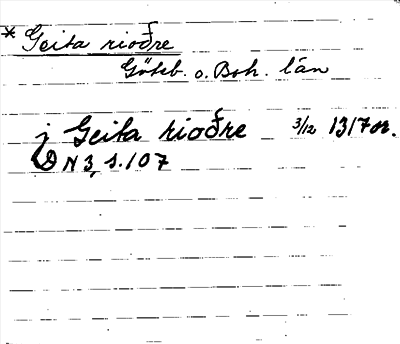 * Geita rioðre
Göteb. o. Boh. län
j Geita rioðre 3/12 1317 or.
DN 3, s. 107